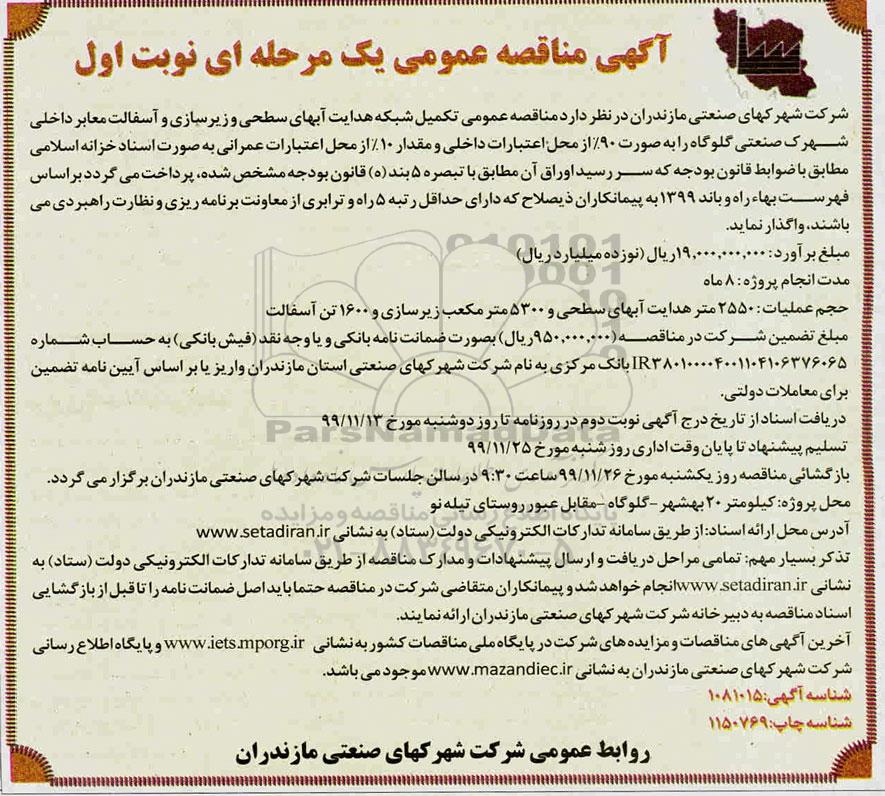 آگهی مناقصه عمومی یک مرحله ای نوبت اول
شرکت شهرکهای صنعتی مازندران در نظر دارد مناقصه عمومی تکمیل شبکه هدایت آبهای سطحی و زیرسازی و آسفالت معابر داخلی
شهرک صنعتی گلوگاه را به صورت ۹۰٪ از محل اعتبارات داخلی و مقدار ۱۰٪ از محل اعتبارات عمرانی به صورت اسناد خزانه اسلامی
مطابق با ضوابط قانون بودجه که سر رسید اوراق آن مطابق با تبصره ۵ بند (ه) قانون بودجه مشخص شده، پرداخت می گردد بر اساس
فهرست بهاء راه و باند ۱۳۹۹ به پیمانکاران ذیصلاح که دارای حداقل رتبه ۵ راه و ترابری از معاونت برنامه ریزی و نظارت راهبردی می
باشند، واگذار نماید.
مبلغ برآورد: ۱۹,۰۰۰,۰۰۰,۰۰۰ ریال (نوزده میلیارد ریال)
مدت انجام پروژه: ۸ ماه
حجم عملیات: ۲۵۵۰ متر هدایت آبهای سطحی و ۵۳۰۰ متر مکعب زیرسازی و ۱۶۰۰ تن آسفالت
مبلغ تضمین شرکت در مناقصه (۹۵۰,۰۰۰,۰۰۰ ریال) بصورت ضمانت نامه بانکی و یا وجه نقد (فیش بانکی) به حساب شماره
IR۳۸۰۱۰۰۰۰۴۰۰۱۱۰۴۱۰۶۳۷۶۰۶۵ بانک مرکزی به نام شرکت شهرکهای صنعتی استان مازندران واریز یا بر اساس آیین نامه تضمین
برای معاملات دولتی.
دریافت اسناد از تاریخ درج آگهی نوبت دوم در روزنامه تا روز دوشنبه مورخ ۹۹/۱۱/۱۳
تسلیم پیشنهاد تا پایان وقت اداری روز شنبه مورخ ۹۹/۱۱/۲۵
بازگشائی مناقصه روز یکشنبه مورخ ۹۹/۱۱/۲۶ ساعت ۹:۳۰ در سالن جلسات شرکت شهرکهای صنعتی مازندران برگزار می گردد.
محل پروژه: کیلومتر ۲۰ بهشهر - گلوگاه - مقابل عبور روستای تیله نو
آدرس محل ارائه اسناد: از طریق سامانه تدارکات الکترونیکی دولت (ستاد) به نشانی www.setadiran.ir
تذکر بسیار مهم: تمامی مراحل دریافت و ارسال پیشنهادات و مدارک مناقصه از طریق سامانه تدارکات الکترونیکی دولت (ستاد) به
نشانی www.setadiran.ir انجام خواهد شد و پیمانکاران متقاضی شرکت در مناقصه حتما باید اصل ضمانت نامه را تا قبل از بازگشایی
اسناد مناقصه به دبیرخانه شرکت شهرکهای صنعتی مازندران ارائه نمایند.
آخرین آگهی های مناقصات و مزایده های شرکت در پایگاه ملی مناقصات کشور به نشانی www.iets.mporg.ir و پایگاه اطلاع رسانی
شرکت شهرکهای صنعتی مازندران به نشانی www.mazandiec.ir موجود می باشد.
شناسه آگهی: ۱۰۸۱۰۱۵
شناسه چاپ: ۱۱۵۰۷۶۹
روابط عمومی شرکت شهرکهای صنعتی مازندران
ParsNamadData
پایگاه اطلاع رسانی مناقصه و مزایده